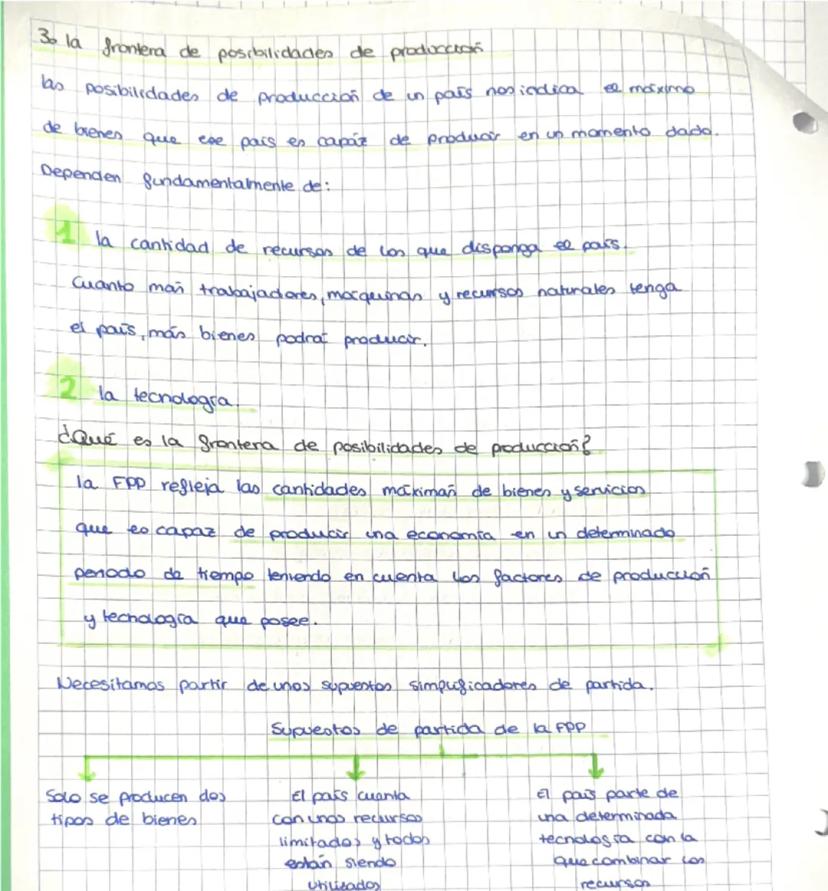 3. la frontera de posibilidades de producción
las posibilidades de producción de un país nos indica el máximo
de bienes que ese país es capáz de producir en un momento dado.
Dependen fundamentalmente de:
1 la cantidad de recursos de los que disponga el país.
Cuanto más trabajadores, máquinas y recursos naturales tenga
el país, más bienes podrá producir.
2 la tecnología.
¿Qué es la frontera de posibilidades de producción?
la FPP refleja las cantidades máximas de bienes y servicios
que es capaz de producir una economía en un determinado
periodo de tiempo teniendo en cuenta los factores de producción
y tecnología que posee.
Necesitamos partir de unos supuestos simplificadores de partida.
Supuestos de partida de la FPP
Solo se producen dos
tipos de bienes
El país cuenta
con unos recursos
limitados y todos
están siendo
utilizados
El país parte de
una determinada
tecnología con la
que combinar los
recursos